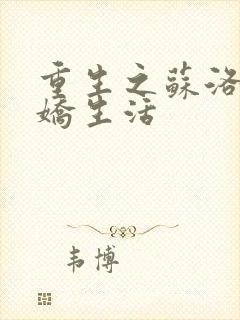 重生之蘇洛
嬌生活
韦博